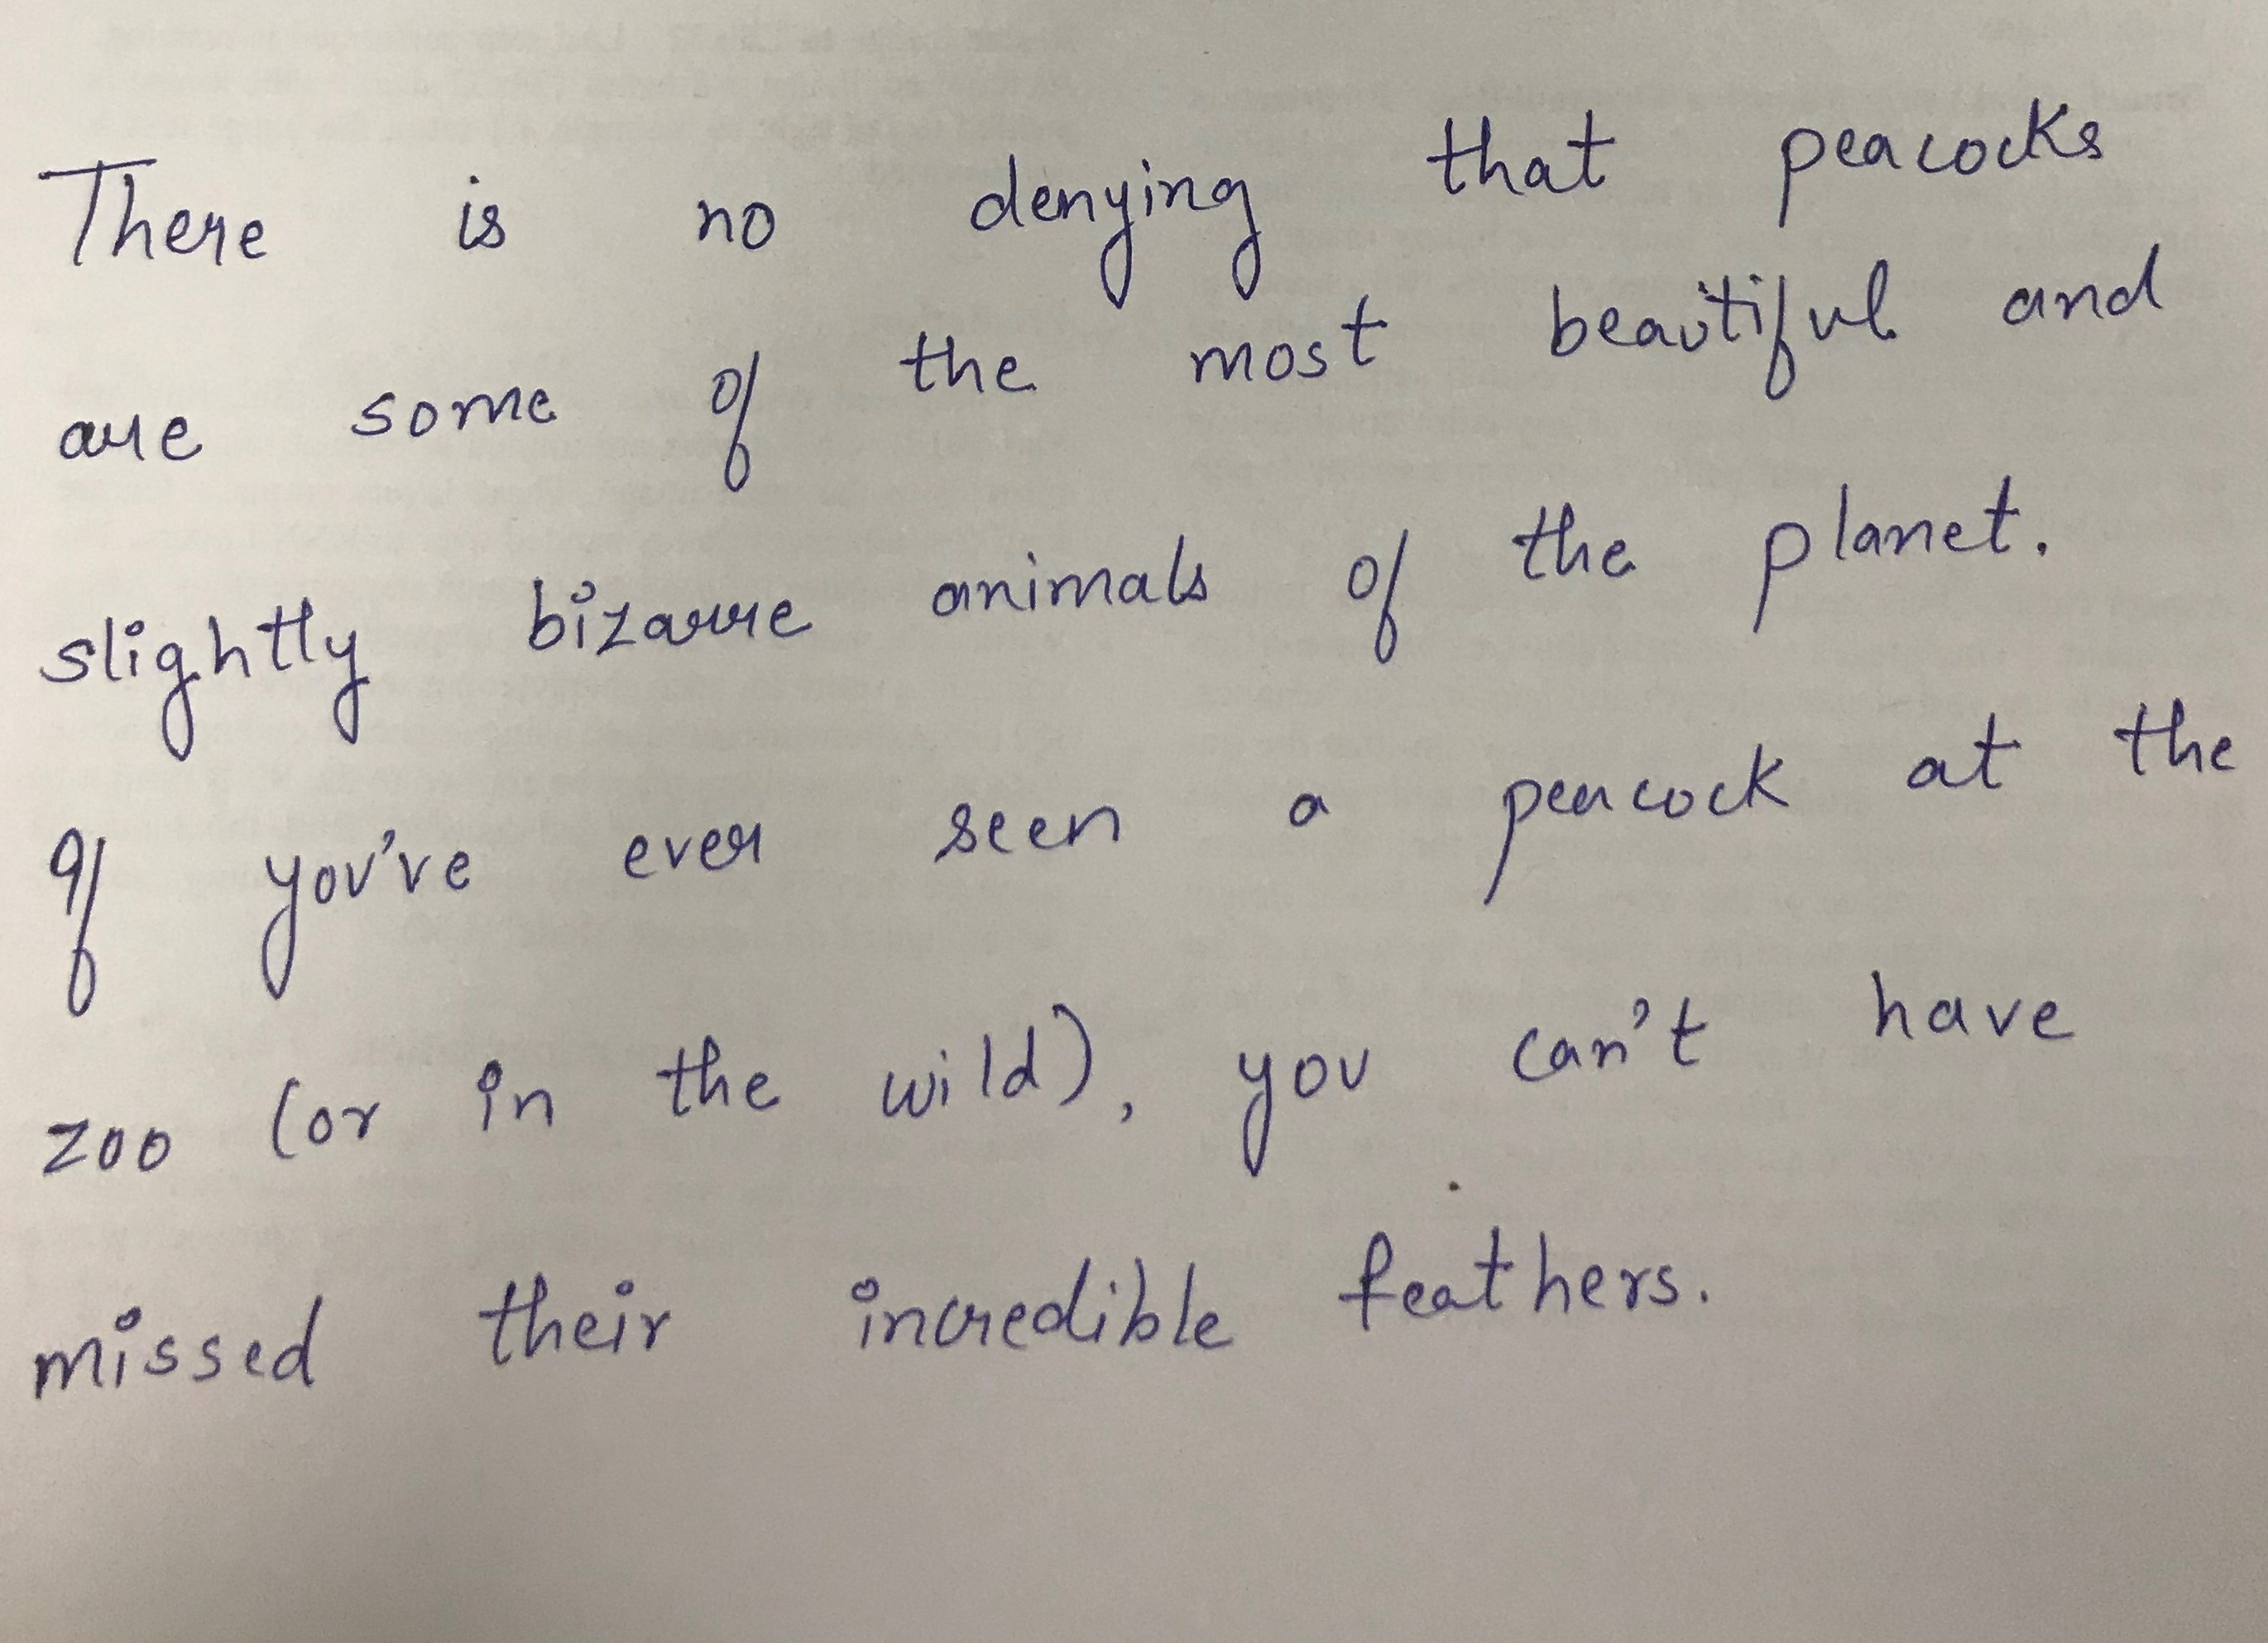 There is no denying that peacocks
are some of the most beautiful and
slightly bizarre animals of the planet.
If you've ever seen a peacock at the
zoo (or in the wild), you can't have
missed their incredible feathers.